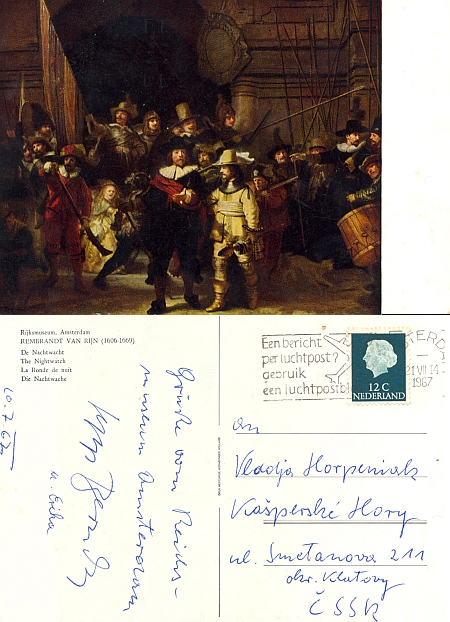 Rijksmuseum, Amsterdam
REMBRANDT VAN RIJN (1606-1669)
De Nachtwacht
The Nightwatch
La Ronde de nuit
Die Nachtwache
20.7.67
Grüsse vom Reichs-
museum Amsterdam
u. Erika
Een bericht
per luchtpost?
gebruik
een luchtpostbl
STERDA
21 VII 14
1967
12 C
NEDERLAND
An
Vladja Horpeniak
Kašperské Hory
ul. Smetanova 211
okr. Klatovy
ČSSR